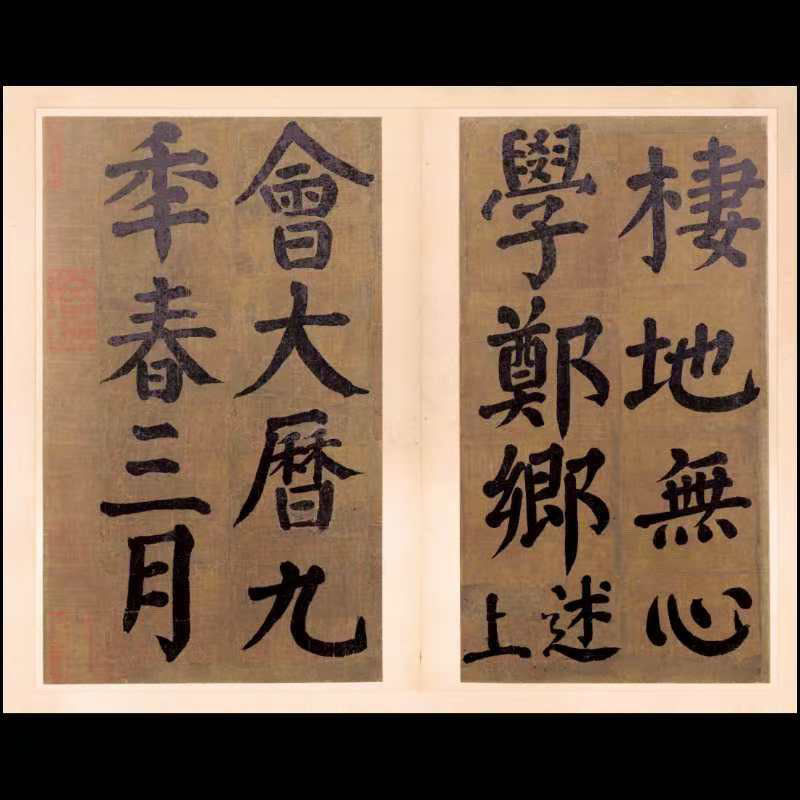 棲地無心
學鄭鄉
述上
會大曆九
秊春三月